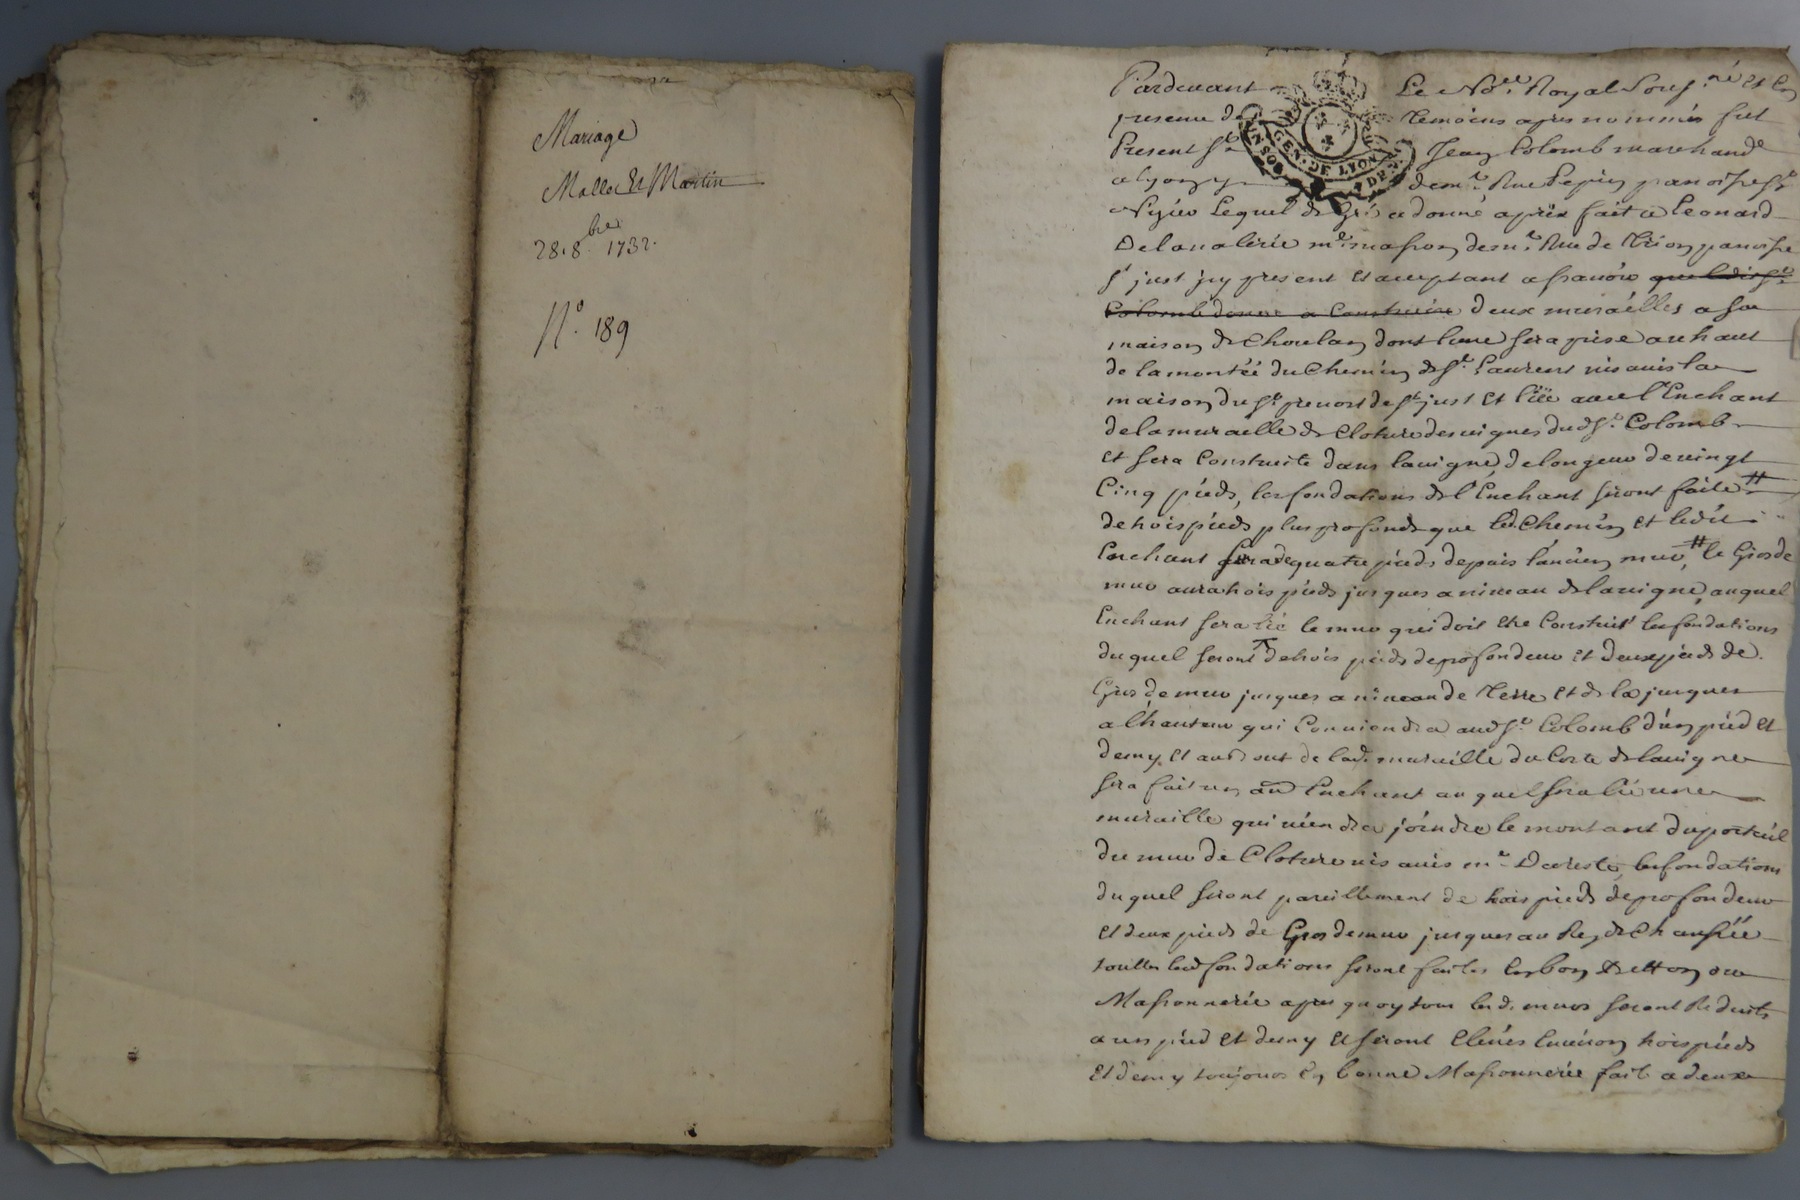 Mariage
Mallet Et Martin
28. 8.bre 1732.
N.o 189
Pardevant Le No.re Royal Sous.né et En
presence des temoins apres nommés fut
Present Sr. Jean Colomb marchand
a lyon y dem.t Rue Pepin paroisse St.
Nyzier Lequel de Gré a donné a prix fait a Leonard
Delavalerie m.e masson dem.t Rue de Trion paroisse
St. just icy present Et acceptant a sçavoir que ledit Sr.
Colomb donne a Construire deux muraïlles a sa
maison de Choulan dont lune sera prise au haut
de la montéé du Chemin de St. Laurent vis avis la
maison du Sr. prevost de St. just Et liéé avec l'Enchant
de la muraille de Cloture des vignes dud. Sr. Colomb
Et sera Construite dans la vigne, de longeur de vingt
Cinq pieds, les fondations de l'Enchant seront faites #
de trois pieds plus profonds que led. Chemin et ledit
Enchant sera de quatre pieds depuis l'ancien mur, # le Gros de
mur aura trois pieds jusques a niveau de la vigne, auquel
Enchant sera lié le mur qui doit être Construit les fondations
du quel seront de trois pieds de profondeur Et deux pieds de
Gros de mur jusques a niveau de Terre Et de la jusques
a l'hauteur qui Conviendra aud. Sr. Colomb d'un pied Et
demy, Et au bout de lad. muraille du Coste de la vigne
sera fait un Enchant au quel sera lié une
muraille qui viendra joindre le montant du porteil
du mur de Cloture vis avis m.r Dareste, les fondations
du quel seront pareillement de trois pieds de profondeur
Et deux pieds de Gros de mur jusques au Rez de Chausséé
toutes lesd. fondations seront faites En bon Betton ou
Massonnerie apres quoy tous lesd. murs seront Reduits
a un pied Et demy Et seront Elevés Environ trois pieds
Et demy toujours En bonne Massonnerie fait a deux